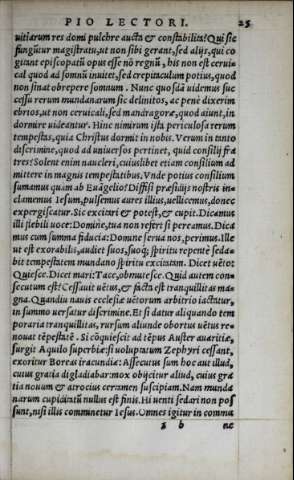 PIO LECTORI. 25
uitiarum res domi pulchre aucta & constabilita? Qui sic
fungūtur magistratu, ut non sibi gerant, sed alijs, qui co
gitant episcopatū opus esse nō regnū, his non est ceruic
cal quod ad somnū inuitet, sed crepitaculum potius, quod
non sinat obrepere somnum. Nunc quosdā uidemus suc
cessu rerum mundanarum sic delinitos, ac penè dixerim
ebrios, ut non ceruicali, sed mandragoræ, quod aiunt, in
dormire uideantur. Hinc nimirum ista periculosa rerum
tempestas, quia Christus dormit in nobis. Verum in tanto
discrimine, quod ad uniuersos pertinet, quid consilij fra
tres? Solent enim naucleri, cuiuslibet etiam consilium ad
mittere in magnis tempestatibus. Vnde potius consilium
sumamus quàm ab Euāgelio? Diffisi præsidijs nostris in=
clamemus Iesum, pulsemus aures illius, uellicemus, donec
expergiscatur. Sic excitari & potest, & cupit. Dicamus
illi flebili uoce: Domine, tua non refert si pereamus. Dica
mus cum summa fiducia: Domine serua nos, perimus. Ille
ut est exorabilis, audiet suos, suoq́; spiritu repente seda=
bit tempestatem mundano spiritu excitatam. Dicet uēto:
Quiesce. Dicet mari: Tace, obmutesce. Quid autem con=
secutum est? Cessauit uētus, & facta est tranquillitas ma=
gna. Quandiu nauis ecclesiæ uētorum arbitrio iactatur,
in summo uersatur discrimine. Et si datur aliquando tem
poraria tranquillitas, rursum aliunde obortus uētus re=
nouat tēpestatē. Si cōquiescit ad tēpus Auster auaritiæ,
surgit Aquilo superbiæ: si uoluptatum Zephyri cessant,
exoritur Boreas iracundiæ: Assecutus sum hoc aut illud,
cuius gratia digladiabar: mox obijcitur aliud, cuius gra
tia nouum & atrocius certamen suscipiam. Nam munda
narum cupiditatū nullus est finis. Hi uenti sedari non pos
sunt, nisi illis comminetur Iesus. Omnes igitur in comma
b
ne